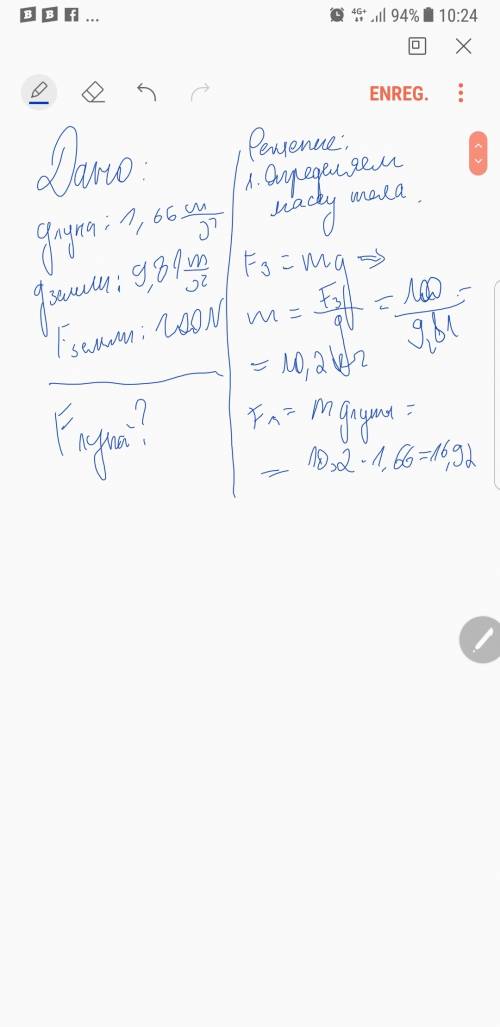 ... 4G+ 94% 10:24
ENREG.
Дано:
gлуна: 1,66 m/s²
gземли: 9,81 m/s²
Fземли: 100N
Fлуна?
Решение:
1. Определяем
массу тела.
Fз = mg ⇒
m = Fз/g = 100/9,81 =
= 10,2 кг
Fл = m gлуны =
= 10,2 · 1,66 = 16,92